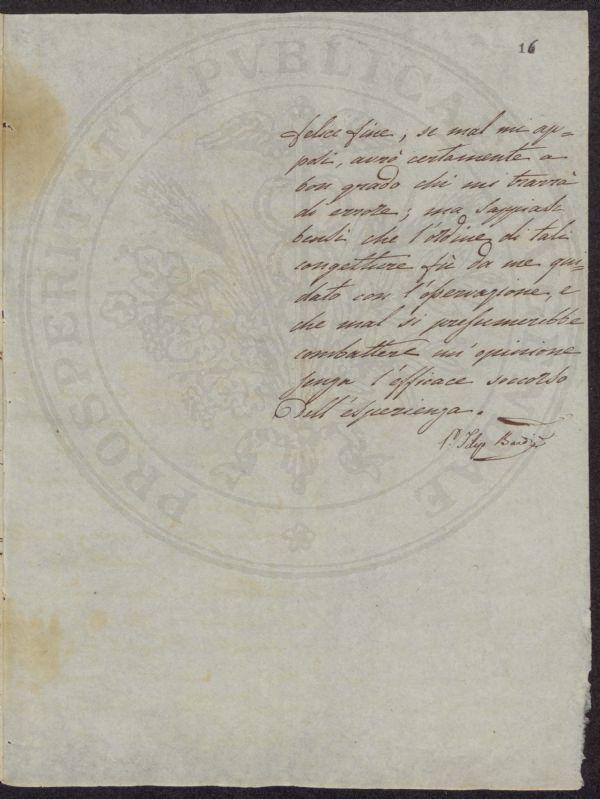 16
felice fine; se mal mi ap=
posi, avrò certamente a
bon grado chi mi trarrà
di errore; ma sappiasi
bensì che l'ordine di tali
congetture fù da me gui=
dato con l'osservazione, e
che mal si presumerebbe
combattere un'opinione
senza l'efficace soccorso
dell'esperienza.
PROSPERITATI PVBLICAE